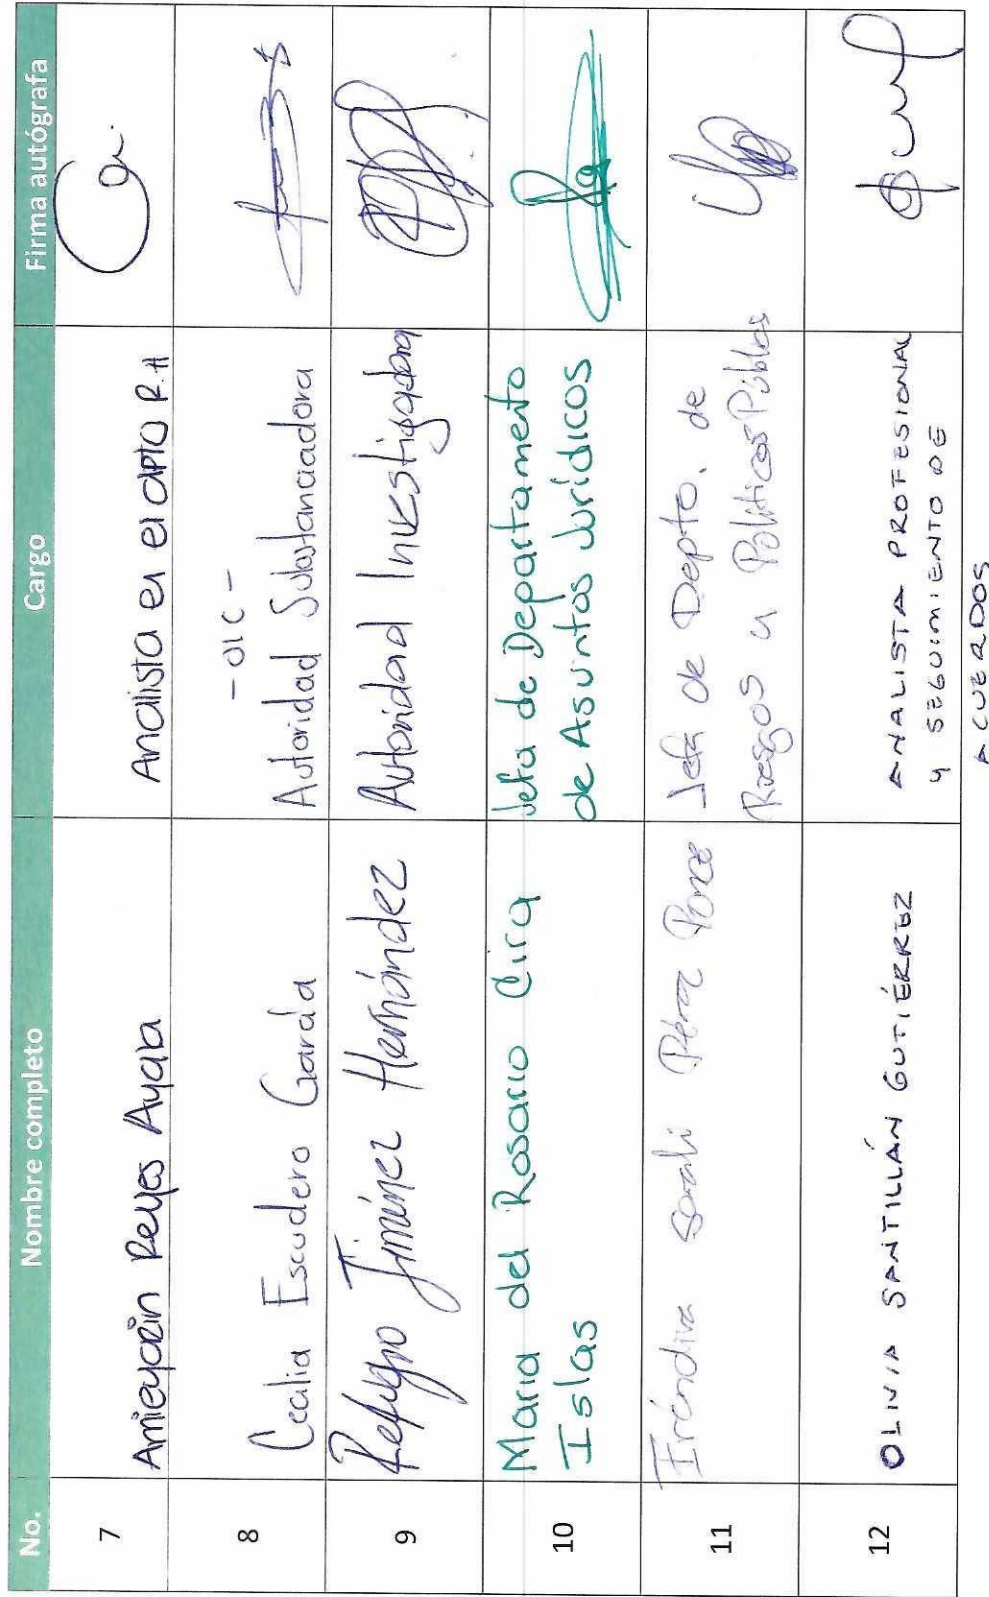 No. Nombre completo Cargo Firma autógrafa
7 Reyes Ayala Analista en el dpto R.H
8 Cecilia Escudero García - OIC -
Autoridad Substanciadora
9 Refugio Jiménez Hernández Autoridad Investigadora
10 Maria del Rosario Cira Jefa de Departamento
Islas de Asuntos Jurídicos
11 Iréndira Sarahi Pérez Ponce Jefa de Depto. de
Riesgos y Políticas Públicas
12 OLIVIA SANTILLÁN GUTIÉRREZ ANALISTA PROFESIONAL
Y SEGUIMIENTO DE
ACUERDOS